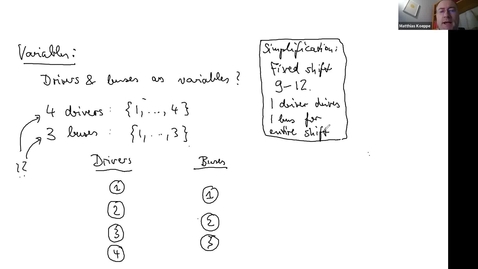 Variables:
Drivers & buses as variables?
4 drivers: {1, ..., 4}
3 buses: {1, ..., 3}
??
Drivers
Buses
1
2
3
4
1
2
3
Simplification:
Fixed shift
9-12.
1 driver drives
1 bus for
entire shift
Matthias Koeppe